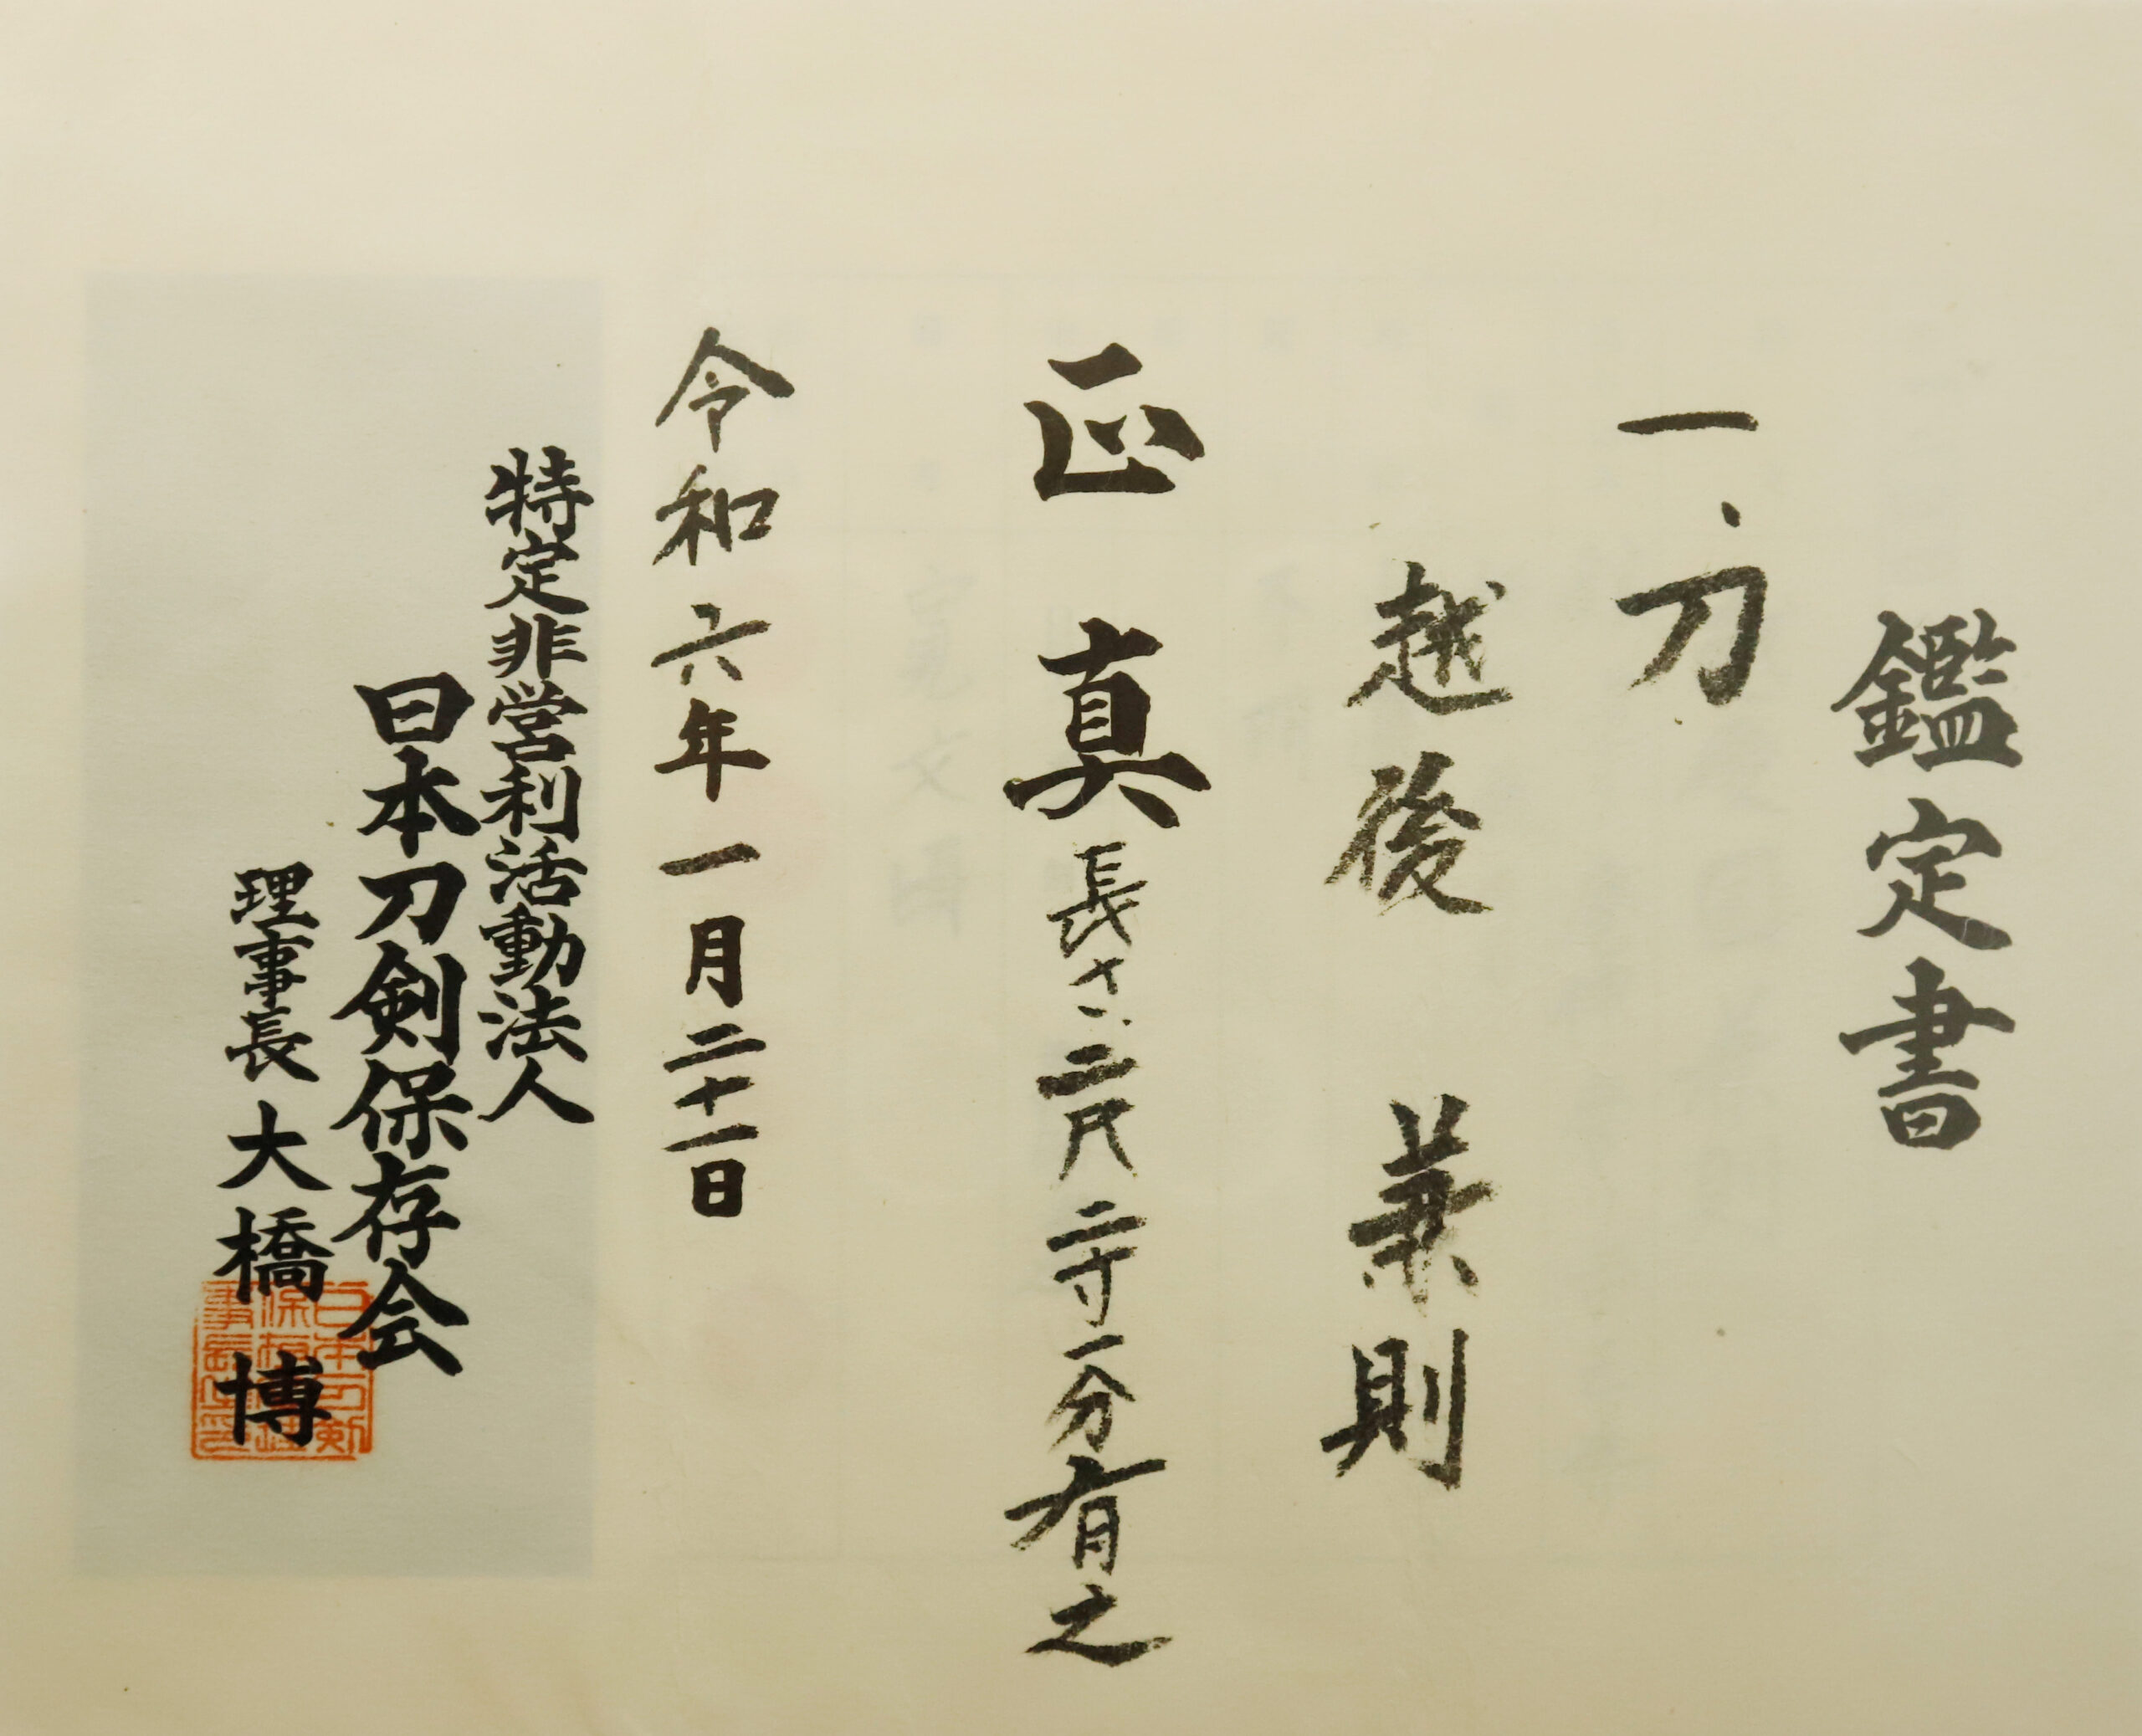 鑑定書
一、刀
越後 兼則
正真 長さ 二尺二寸一分有之
令和六年一月二十一日
特定非営利活動法人
日本刀剣保存会
理事長 大橋 博